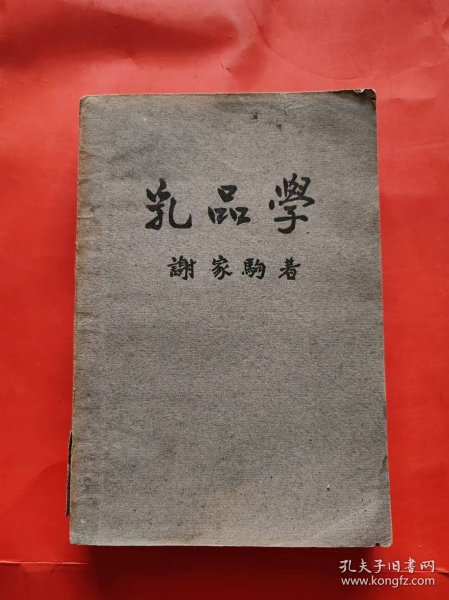 乳品學
謝家駒著
孔夫子旧书网
www.kongfz.com